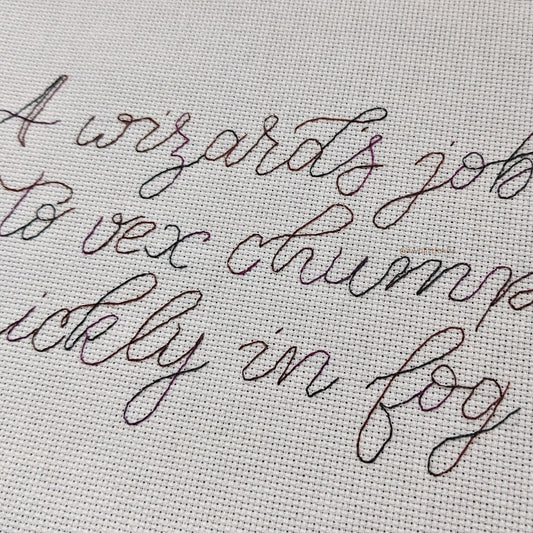 A wizard's job
to vex chump
ickly in fog